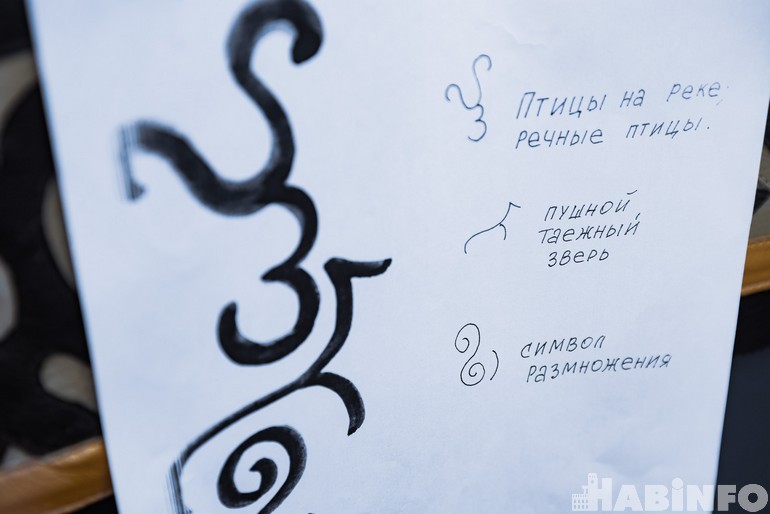 Птицы на реке,
речные птицы.
пушной,
таежный
зверь
символ
размножения
HABINFO